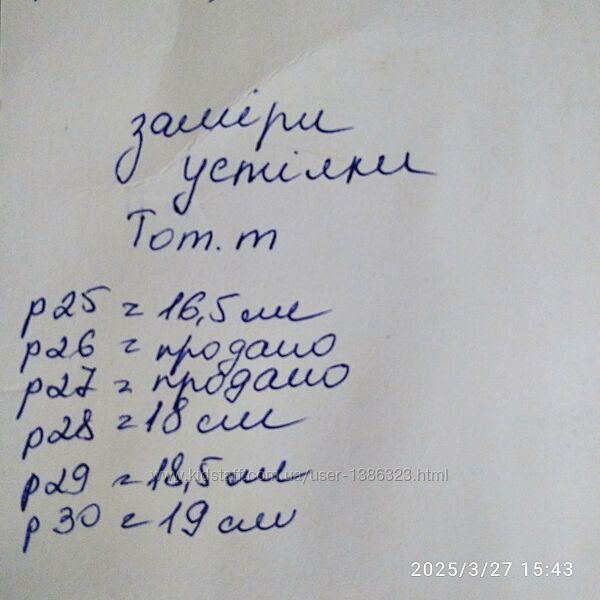 заміри
устілки
Tom.m
р25 = 16,5 см
р26 = продано
р27 = продано
р28 = 18 см
р29 = 18,5 см
www.kidstaff.com.ua/user-1386323.html
р30 = 19 см
2025/3/27 15:43